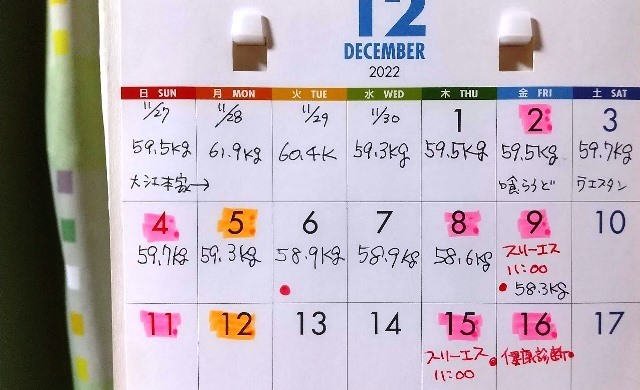 12
DECEMBER
2022
日 SUN 月 MON 火 TUE 水 WED 木 THU 金 FRI 土 SAT
11/27 11/28 11/29 11/30 1 2 3
59.5kg 61.9kg 60.4K 59.3kg 59.5kg 59.5kg 59.7kg
大江本家→ 喰うらど ウエスタン
4 5 6 7 8 9 10
59.7kg 59.3kg 58.9kg 58.9kg 58.6kg スリーエス
11:00
58.3kg
11 12 13 14 15 16 17
スリーエス 健康診断
11:00